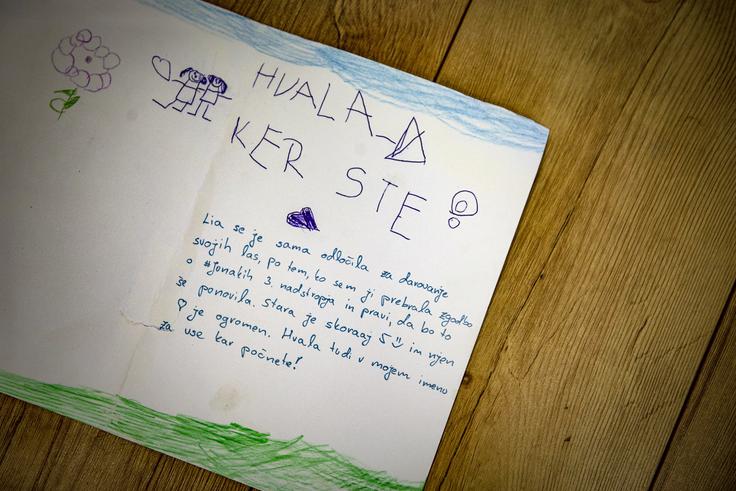 HVALA
KER STE
Lia se je sama odločila za darovanje
svojih las, po tem, ko sem ji prebrala zgodbo
o #Junakih 3. nadstropja in pravi, da bo to
še ponovila. Stara je skoraaj 5 im njen
je ogromen. Hvala tudi v mojem imenu
za vse kar počnete!